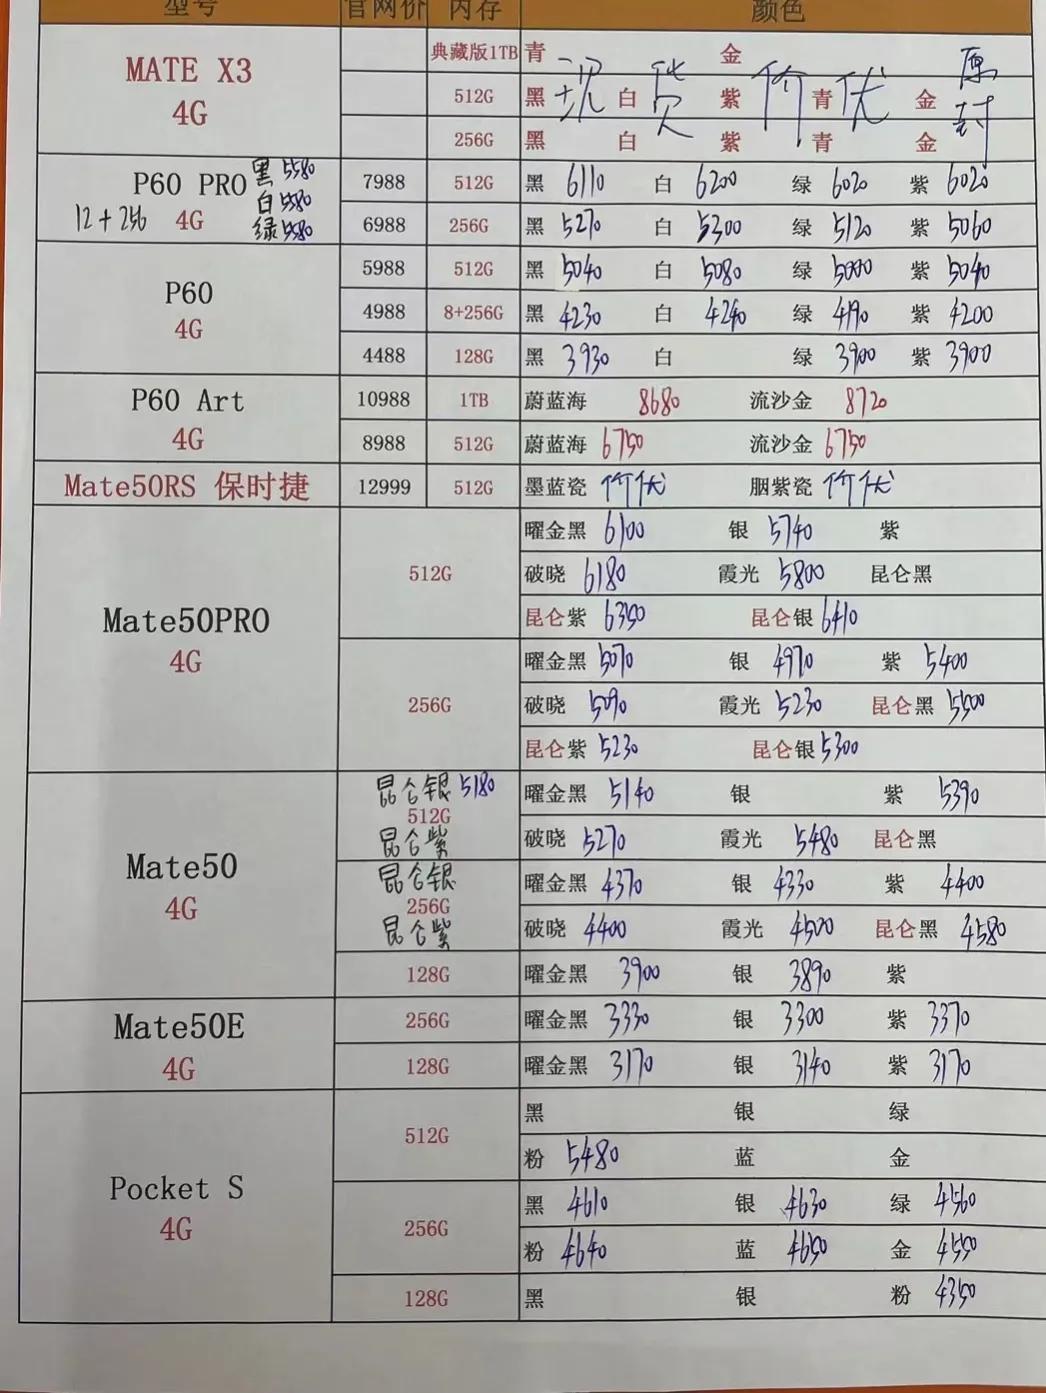 型号 官网价 内存 颜色
MATE X3 4G
典藏版1TB 青 金
512G 黑 白 紫 青 金
256G 黑 白 紫 青 金
现货价优 原封
P60 PRO 4G
12+256 黑5580 白5580 绿5580
7988 512G 黑 6110 白 6200 绿 6020 紫 6020
6988 256G 黑 5270 白 5300 绿 5120 紫 5060
P60 4G
5988 512G 黑 5040 白 5080 绿 5000 紫 5040
4988 8+256G 黑 4230 白 4240 绿 4190 紫 4200
4488 128G 黑 3930 白 绿 3900 紫 3900
P60 Art 4G
10988 1TB 蔚蓝海 8680 流沙金 8720
8988 512G 蔚蓝海 6750 流沙金 6750
Mate50RS 保时捷 12999 512G 墨蓝瓷 价优 胭紫瓷 价优
Mate50PRO 4G
512G 曜金黑 6100 银 5740 紫
破晓 6180 霞光 5800 昆仑黑
昆仑紫 6350 昆仑银 6410
256G 曜金黑 5070 银 4970 紫 5400
破晓 5090 霞光 5230 昆仑黑 5500
昆仑紫 5230 昆仑银 5300
Mate50 4G
昆仑银 5180
512G
昆仑紫
曜金黑 5140 银 紫 5390
破晓 5270 霞光 5480 昆仑黑
昆仑银
256G
昆仑紫
曜金黑 4370 银 4330 紫 4400
破晓 4400 霞光 4500 昆仑黑 4580
128G 曜金黑 3900 银 3890 紫
Mate50E 4G
256G 曜金黑 3330 银 3300 紫 3370
128G 曜金黑 3170 银 3140 紫 3170
Pocket S 4G
512G 黑 银 绿
粉 5480 蓝 金
256G 黑 4610 银 4630 绿 4560
粉 4640 蓝 4650 金 4550
128G 黑 银 粉 4350